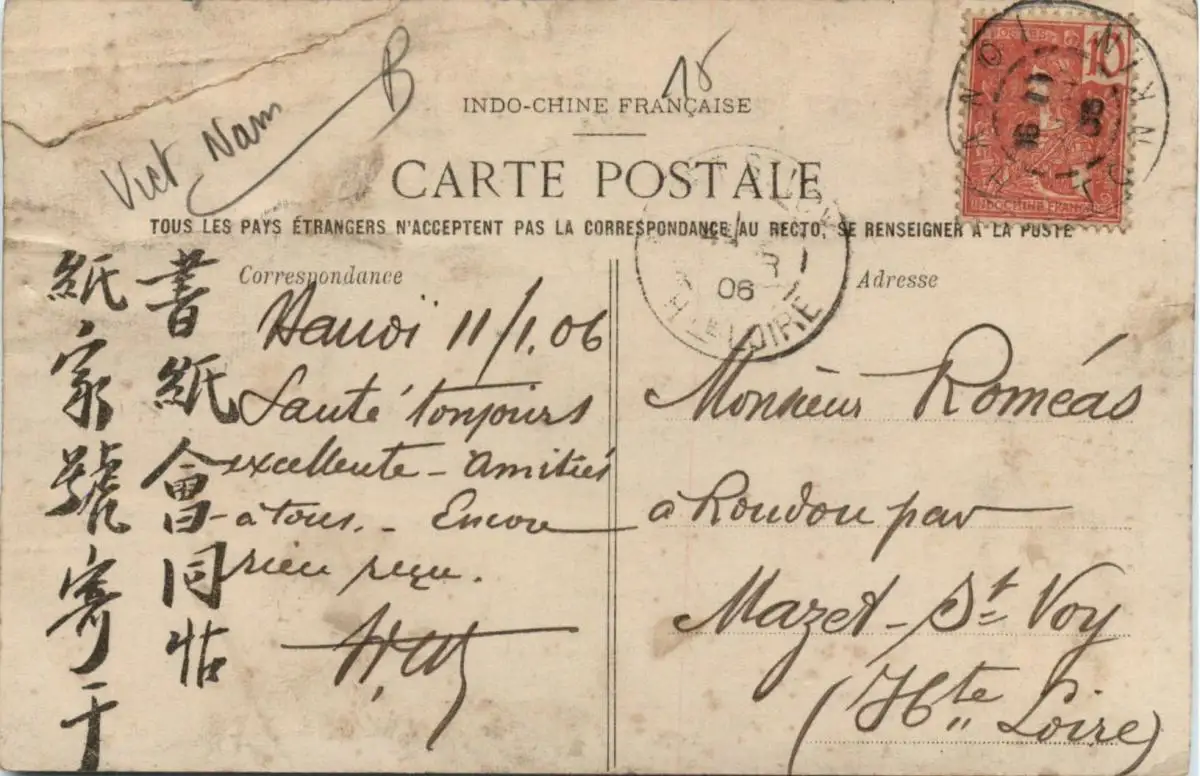 Viet Nam
B
15
INDO-CHINE FRANÇAISE
CARTE POSTALE
TOUS LES PAYS ÉTRANGERS N'ACCEPTENT PAS LA CORRESPONDANCE AU RECTO, SE RENSEIGNER A LA POSTE
10
INDOCHINE FRANÇAISE
HANOI
TONKIN
16
06
06
HTE LOIRE
Correspondance
Hanoï 11/1.06
Santé toujours
excellente - Amitiés
à tous. - Encore
rien reçu.
書紙會同帖
紙家號寄于
Adresse
Monsieur Roméas
à Roudou par
Mazet - St Voy
(Hte Loire)